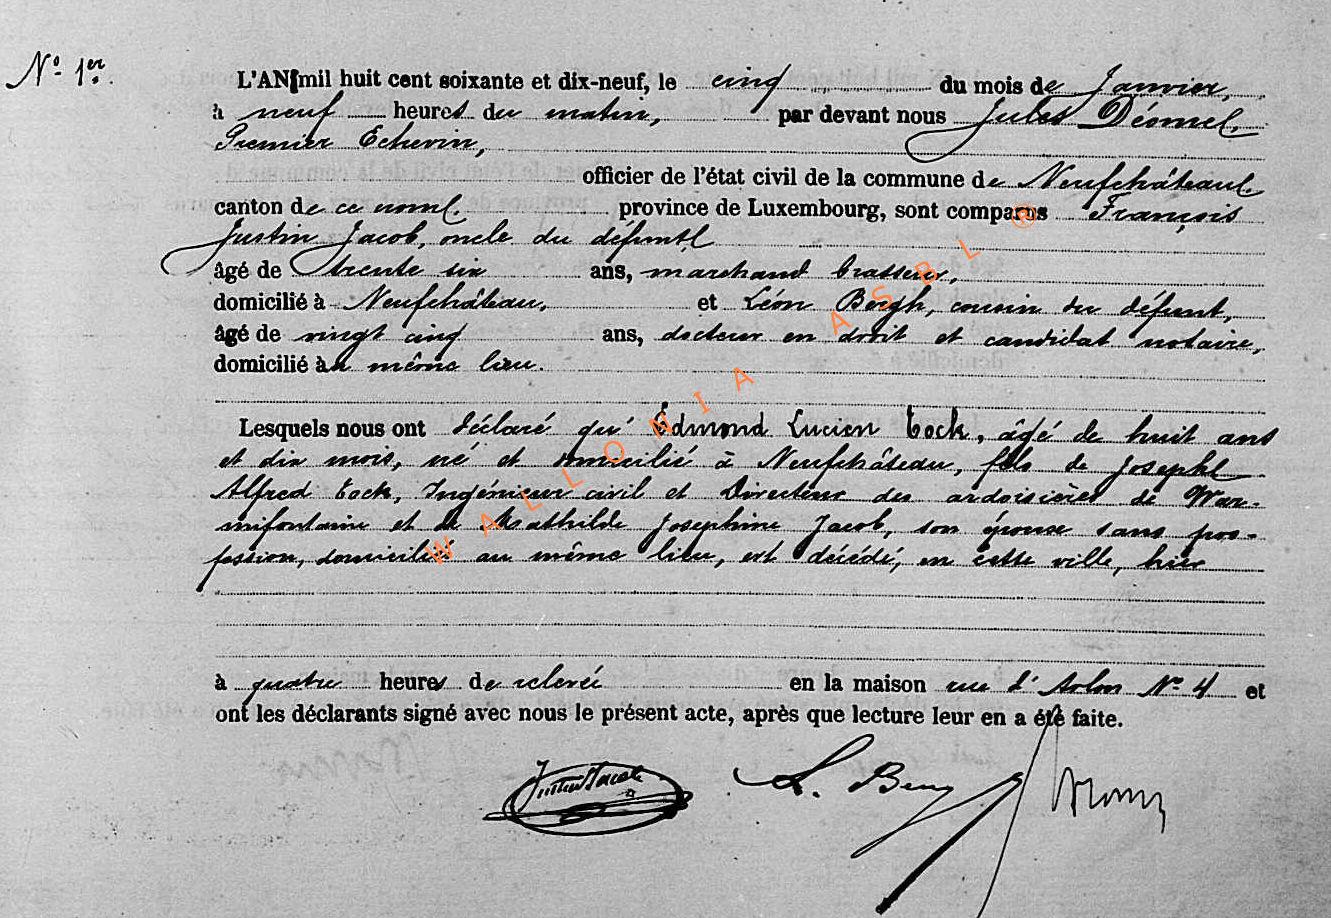 N° 1er.
L'AN mil huit cent soixante et dix-neuf, le cinq du mois de Janvier,
à neuf heures du matin, par devant nous Jules
Premier Echevin,
officier de l'état civil de la commune de Neufchâteau
canton de ce nom, province de Luxembourg, sont comparus François
Justin Jacob, oncle du défunt
âgé de trente six ans, marchand brasseur,
domicilié à Neufchâteau, et Léon Bergh, cousin du défunt,
âgé de vingt cinq ans, docteur en droit et candidat notaire,
domicilié au même lieu.
Lesquels nous ont déclaré qu'Edmond Lucien Tock, âgé de huit ans
et dix mois, né et domicilié à Neufchâteau, fils de Joseph
Alfred Tock, Ingénieur civil et Directeur des ardoisières de War-
mifontaine et de Mathilde Joséphine Jacob, son épouse sans pro-
fession, domiciliés au même lieu, est décédé, en cette ville, hier
à quatre heures de relevée en la maison rue d'Arlon N° 4 et
ont les déclarants signé avec nous le présent acte, après que lecture leur en a été faite.
Justin Jacob L.
WALLONIA ASBL ®